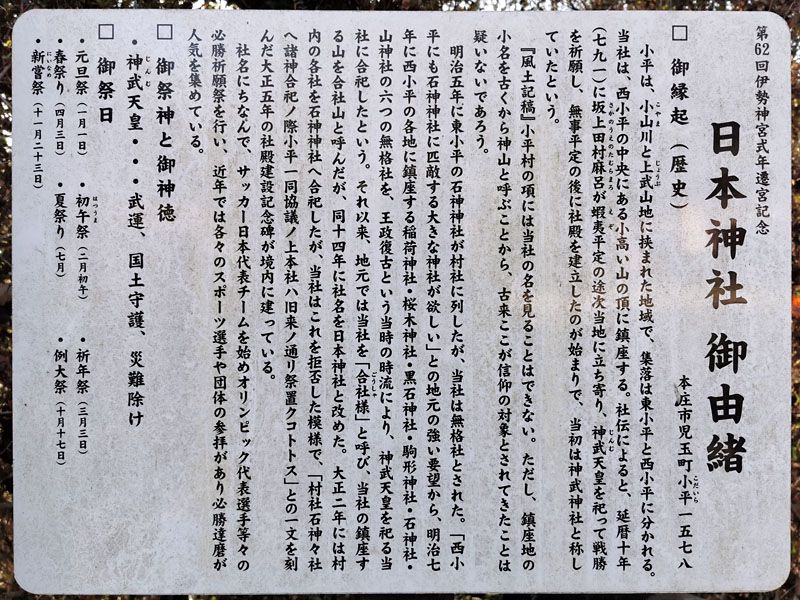 第62回伊勢神宮式年遷宮記念
日本神社 御由緒
本庄市児玉町小平一五七八
こだいら
□ 御縁起(歴史)
小平は、小山川と上武山地に挟まれた地域で、集落は東小平と西小平に分かれる。
こやま じょうぶ
当社は、西小平の中央にある小高い山の頂に鎮座する。社伝によると、延暦十年
(七九一)に坂上田村麻呂が蝦夷平定の途次当地に立ち寄り、神武天皇を祀って戦勝
さかのうえのたむらまろ えぞ じんむ
を祈願し、無事平定の後に社殿を建立したのが始まりで、当初は神武神社と称し
ていたという。
『風土記稿』小平村の項には当社の名を見ることはできない。ただし、鎮座地の
小名を古くから神山と呼ぶことから、古来ここが信仰の対象とされてきたことは
疑いないであろう。
明治五年に東小平の石神神社が村社に列したが、当社は無格社とされた。「西小
平にも石神神社に匹敵する大きな神社が欲しい」との地元の強い要望から、明治七
年に西小平の各地に鎮座する稲荷神社・桜木神社・黒石神社・駒形神社・石神社・
山神社の六つの無格社を、王政復古という当時の時流により、神武天皇を祀る当
社に合祀したという。それ以来、地元では当社を「合社様」と呼び、当社の鎮座す
ごうしゃ
る山を合社山と呼んだが、同十四年に社名を日本神社と改めた。大正二年には村
内の各社を石神神社へ合祀したが、当社はこれを拒否した模様で、「村社石神々社
へ諸神合祀ノ際小平一同協議ノ上本社ハ旧来ノ通リ祭置クコトトス」との一文を刻
んだ大正五年の社殿建設記念碑が境内に建っている。
社名にちなんで、サッカー日本代表チームを始めオリンピック代表選手等々の
必勝祈願祭を行い、近年では各々のスポーツ選手や団体の参拝があり必勝達磨が
人気を集めている。
□ 御祭神と御神徳
・神武天皇・・・武運、国土守護、災難除け
じんむ
□ 御祭日
・元旦祭(一月一日) ・初午祭(二月初午) ・祈年祭(三月三日)
はつうま
・春祭り(四月三日) ・夏祭り(七月) ・例大祭(十月十七日)
・新嘗祭(十一月二十三日)
にいなめ